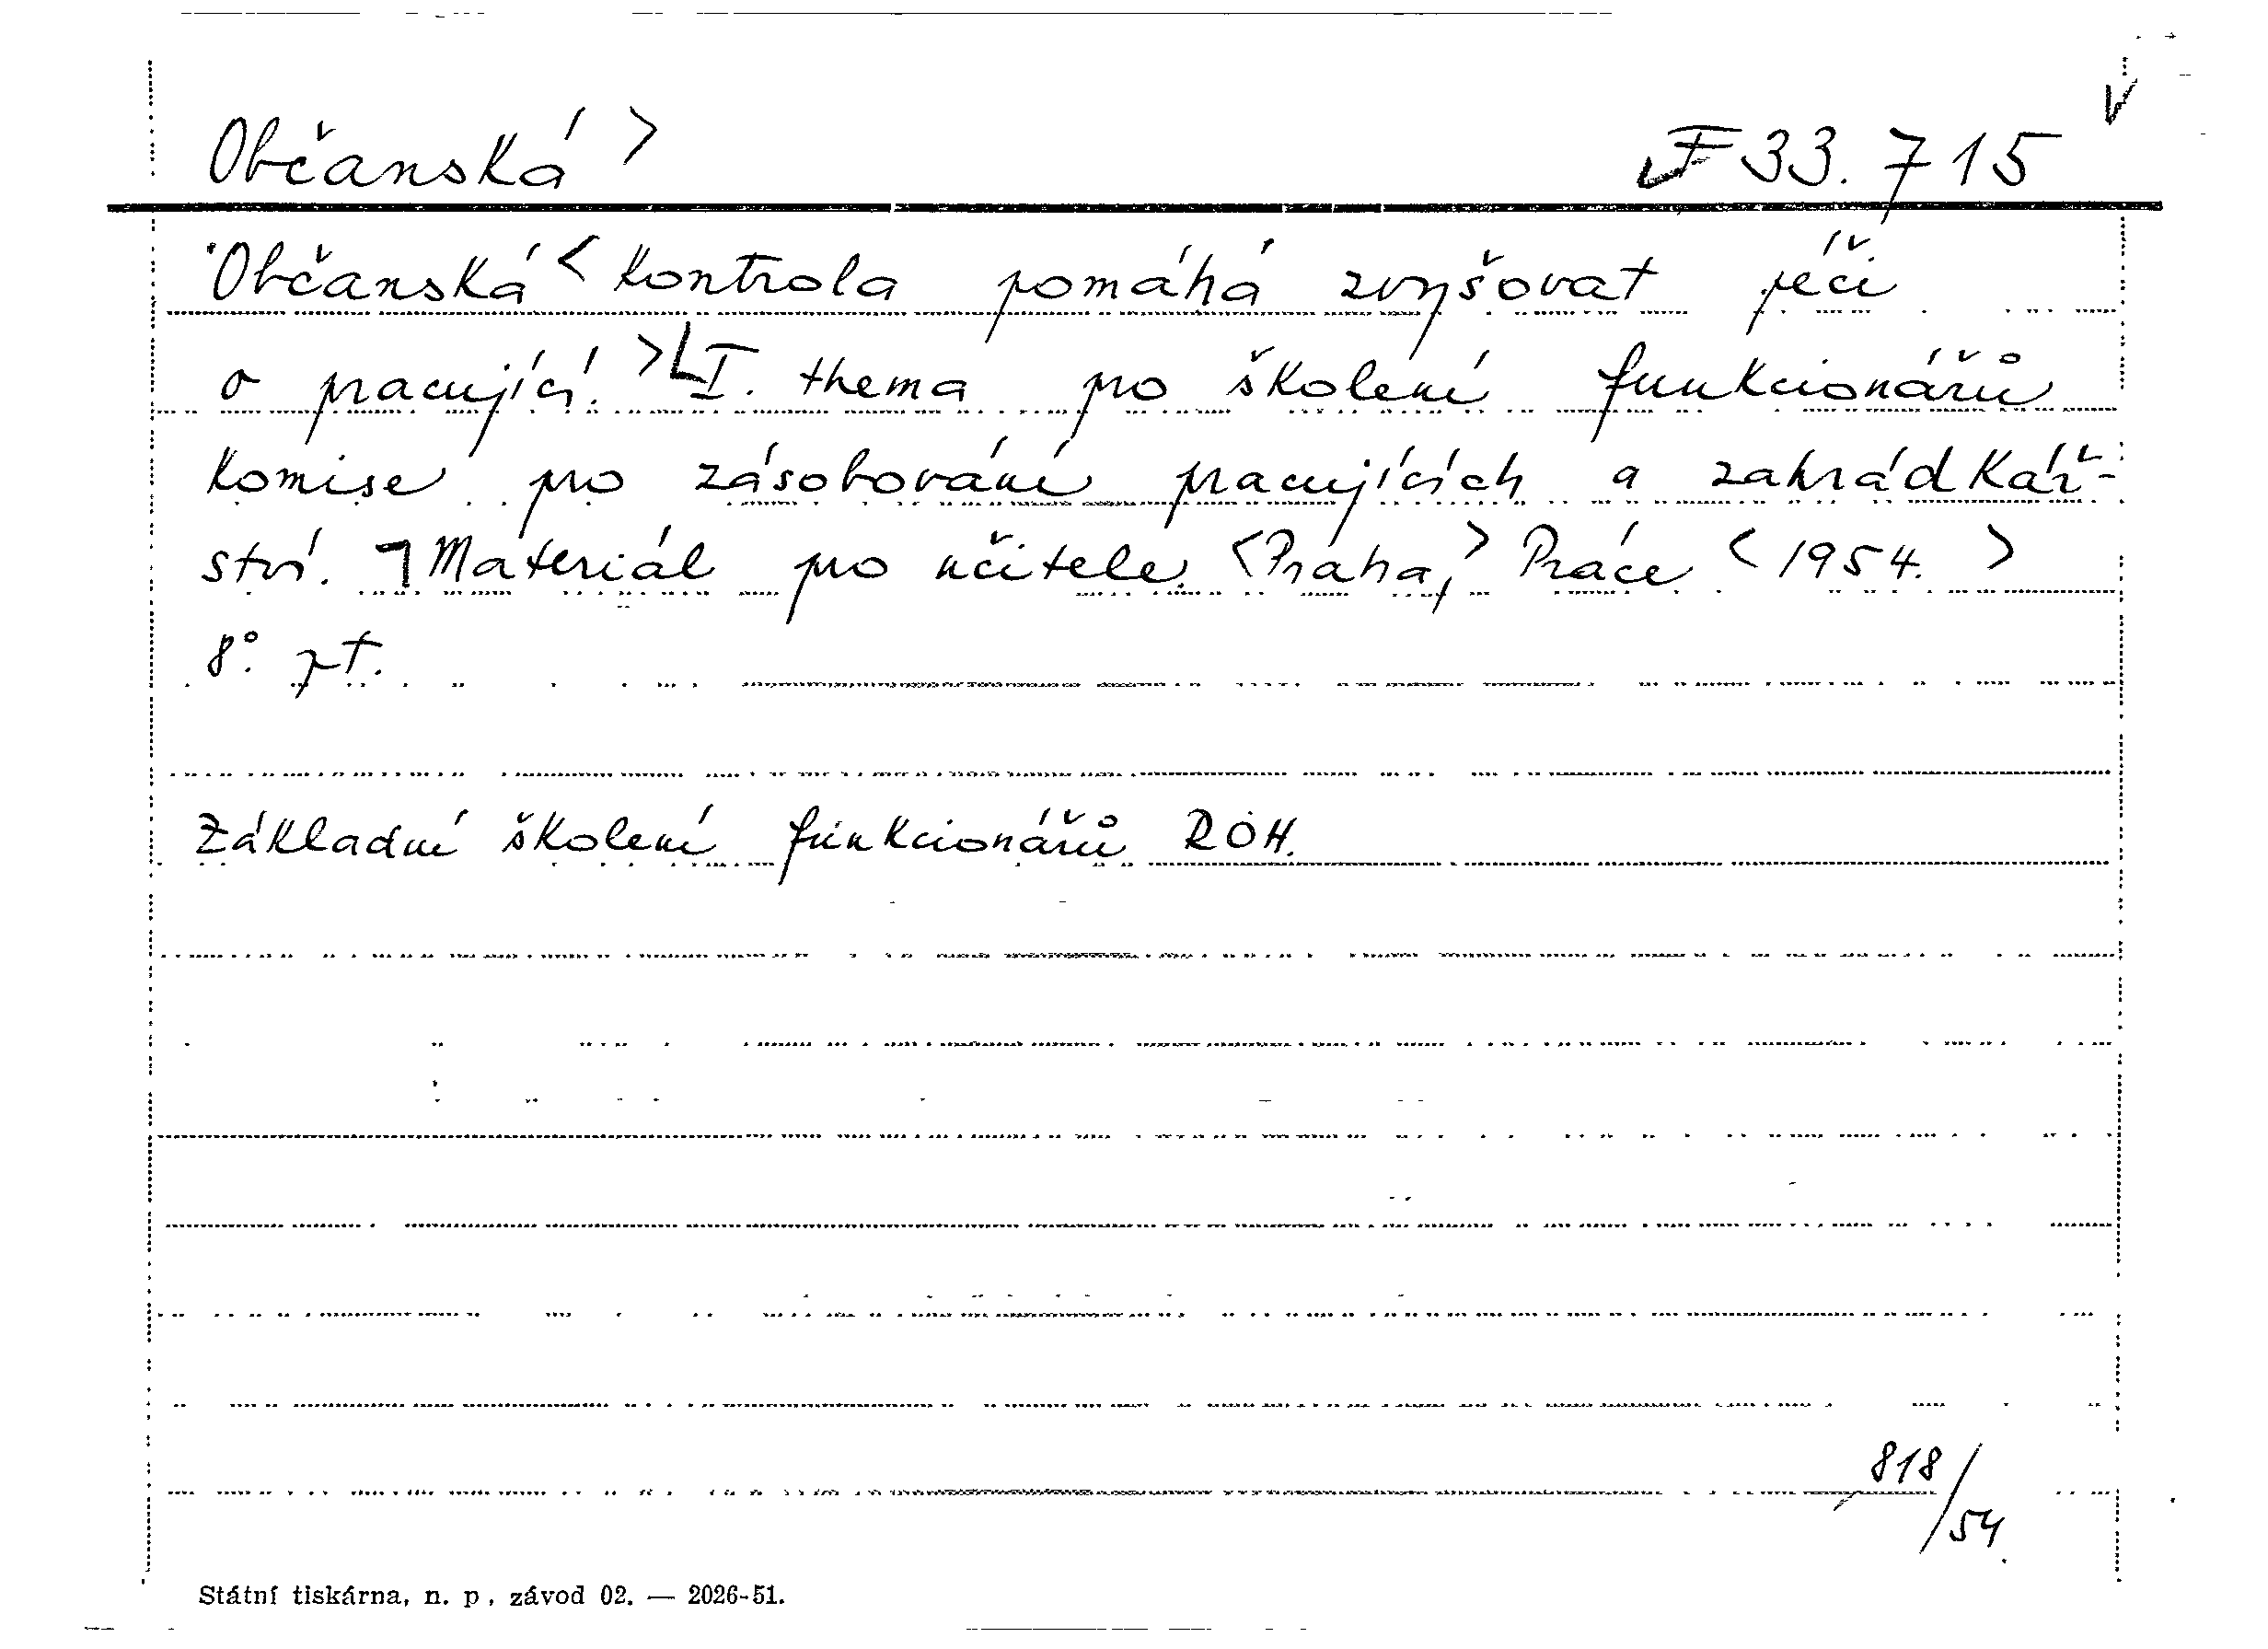 Občanská > F 33.715 V
Občanská < kontrola pomáhá zvyšovat péči
o pracující. > L I. thema pro školení funkcionářů
komise pro zásobování pracujících a zahrádkář-
ství. ┐ Materiál pro učitele. < Praha, > Práce < 1954. >
8°. pt.
Základní školení funkcionářů ROH.
818/54.
Státní tiskárna, n. p., závod 02. — 2026-51.